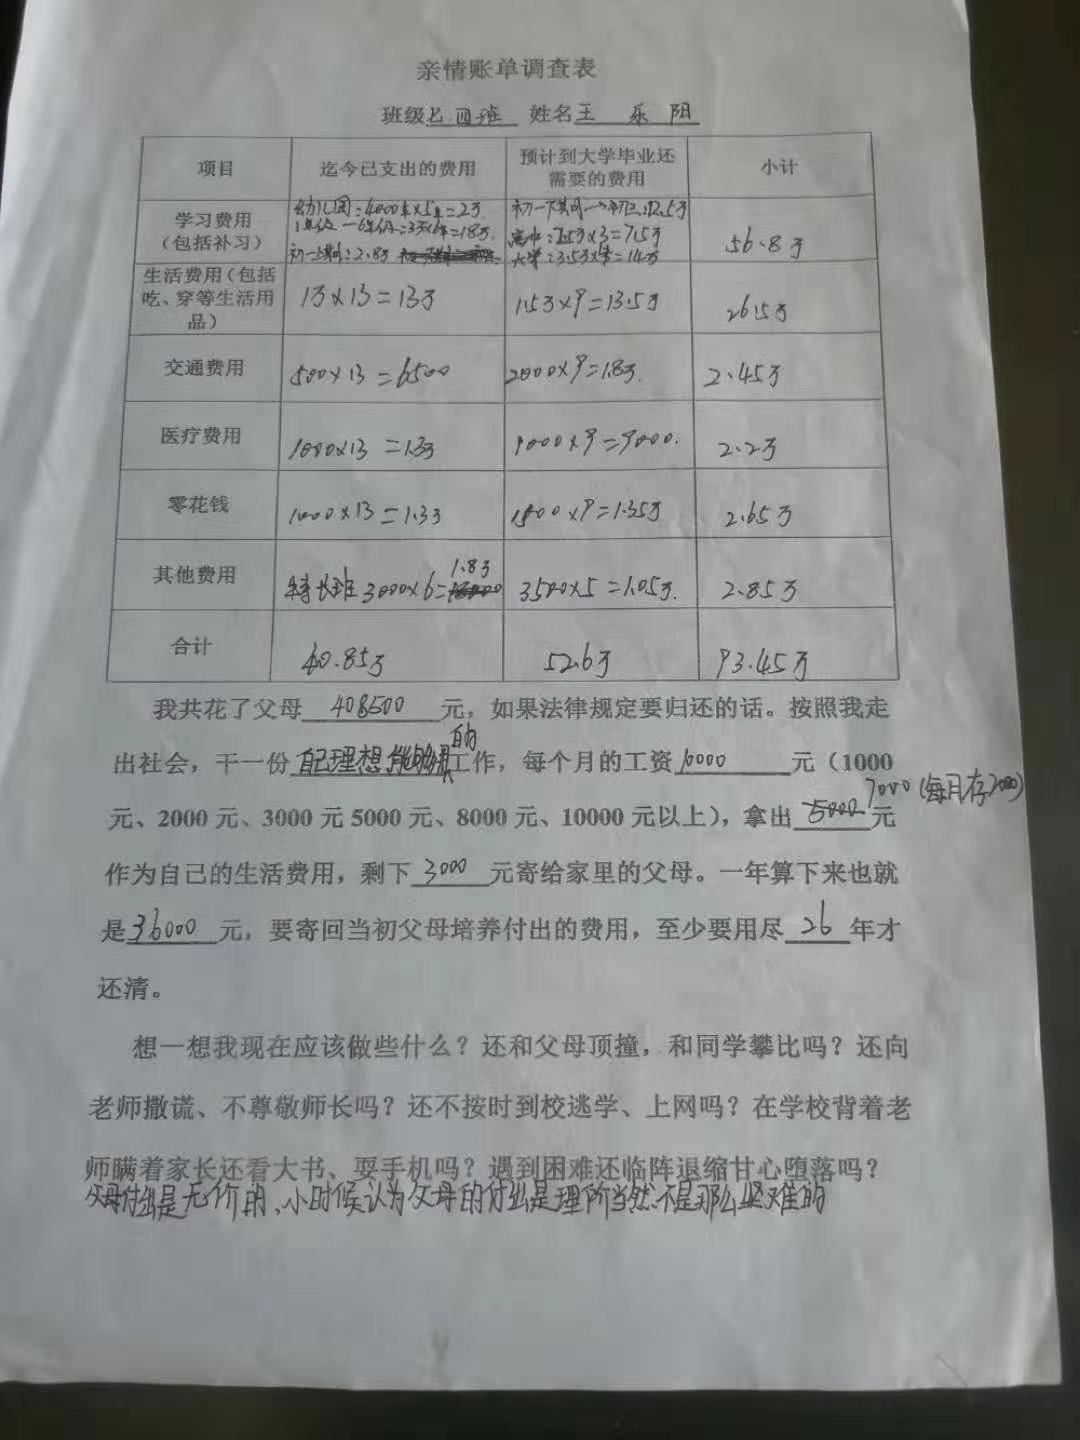 亲情账单调查表
班级七.四班 姓名王 乐 阳
项目 迄今已支出的费用 预计到大学毕业还需要的费用 小计
学习费用（包括补习） 幼儿园:4000×5年=2万. 1年级-6年级:3万×6年=18万. 初一上期:2.8万 初一下期→初三:12.5万 高中:2.5万×3=7.5万 大学:3.5万×4年=14万 56.8万
生活费用（包括吃、穿等生活用品） 1万×13=13万 1.5万×9=13.5万 26.5万
交通费用 500×13=6500 2000×9=1.8万. 2.45万
医疗费用 1000×13=1.3万 1000×9=9000. 2.2万
零花钱 1000×13=1.3万 1500×9=1.35万 2.65万
其他费用 特长班3000×6=1.8万 3500×5=1.05万. 2.85万
合计 40.85万 52.6万 93.45万
我共花了父母408500元，如果法律规定要归还的话。按照我走
出社会，干一份自己理想,能够的工作，每个月的工资10000元（1000
元、2000元、3000元5000元、8000元、10000元以上），拿出7000(每月存2000)元
作为自己的生活费用，剩下3000元寄给家里的父母。一年算下来也就
是36000元，要寄回当初父母培养付出的费用，至少要用尽26年才
还清。
想一想我现在应该做些什么？还和父母顶撞，和同学攀比吗？还向
老师撒谎、不尊敬师长吗？还不按时到校逃学、上网吗？在学校背着老
师瞒着家长还看大书、耍手机吗？遇到困难还临阵退缩甘心堕落吗？
父母付出是无价的、小时候认为父母的付出是理所当然不是那么坚难的